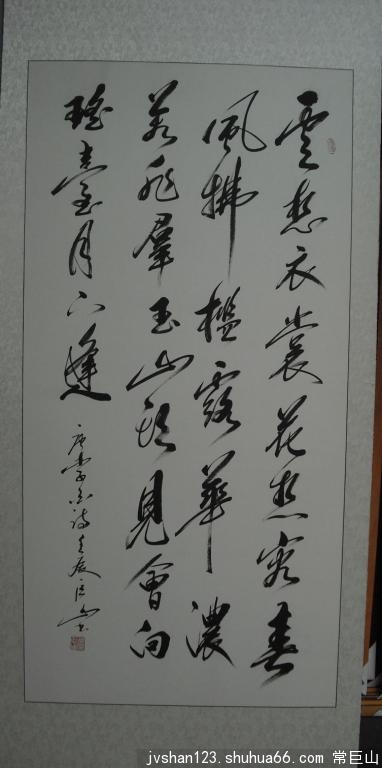 雲想衣裳花想容春
風拂檻露華濃
若非羣玉山頭見會向
瑤臺月下逢
唐李白詩壬辰巨山書
jvshan123.shuhua66.com 常巨山